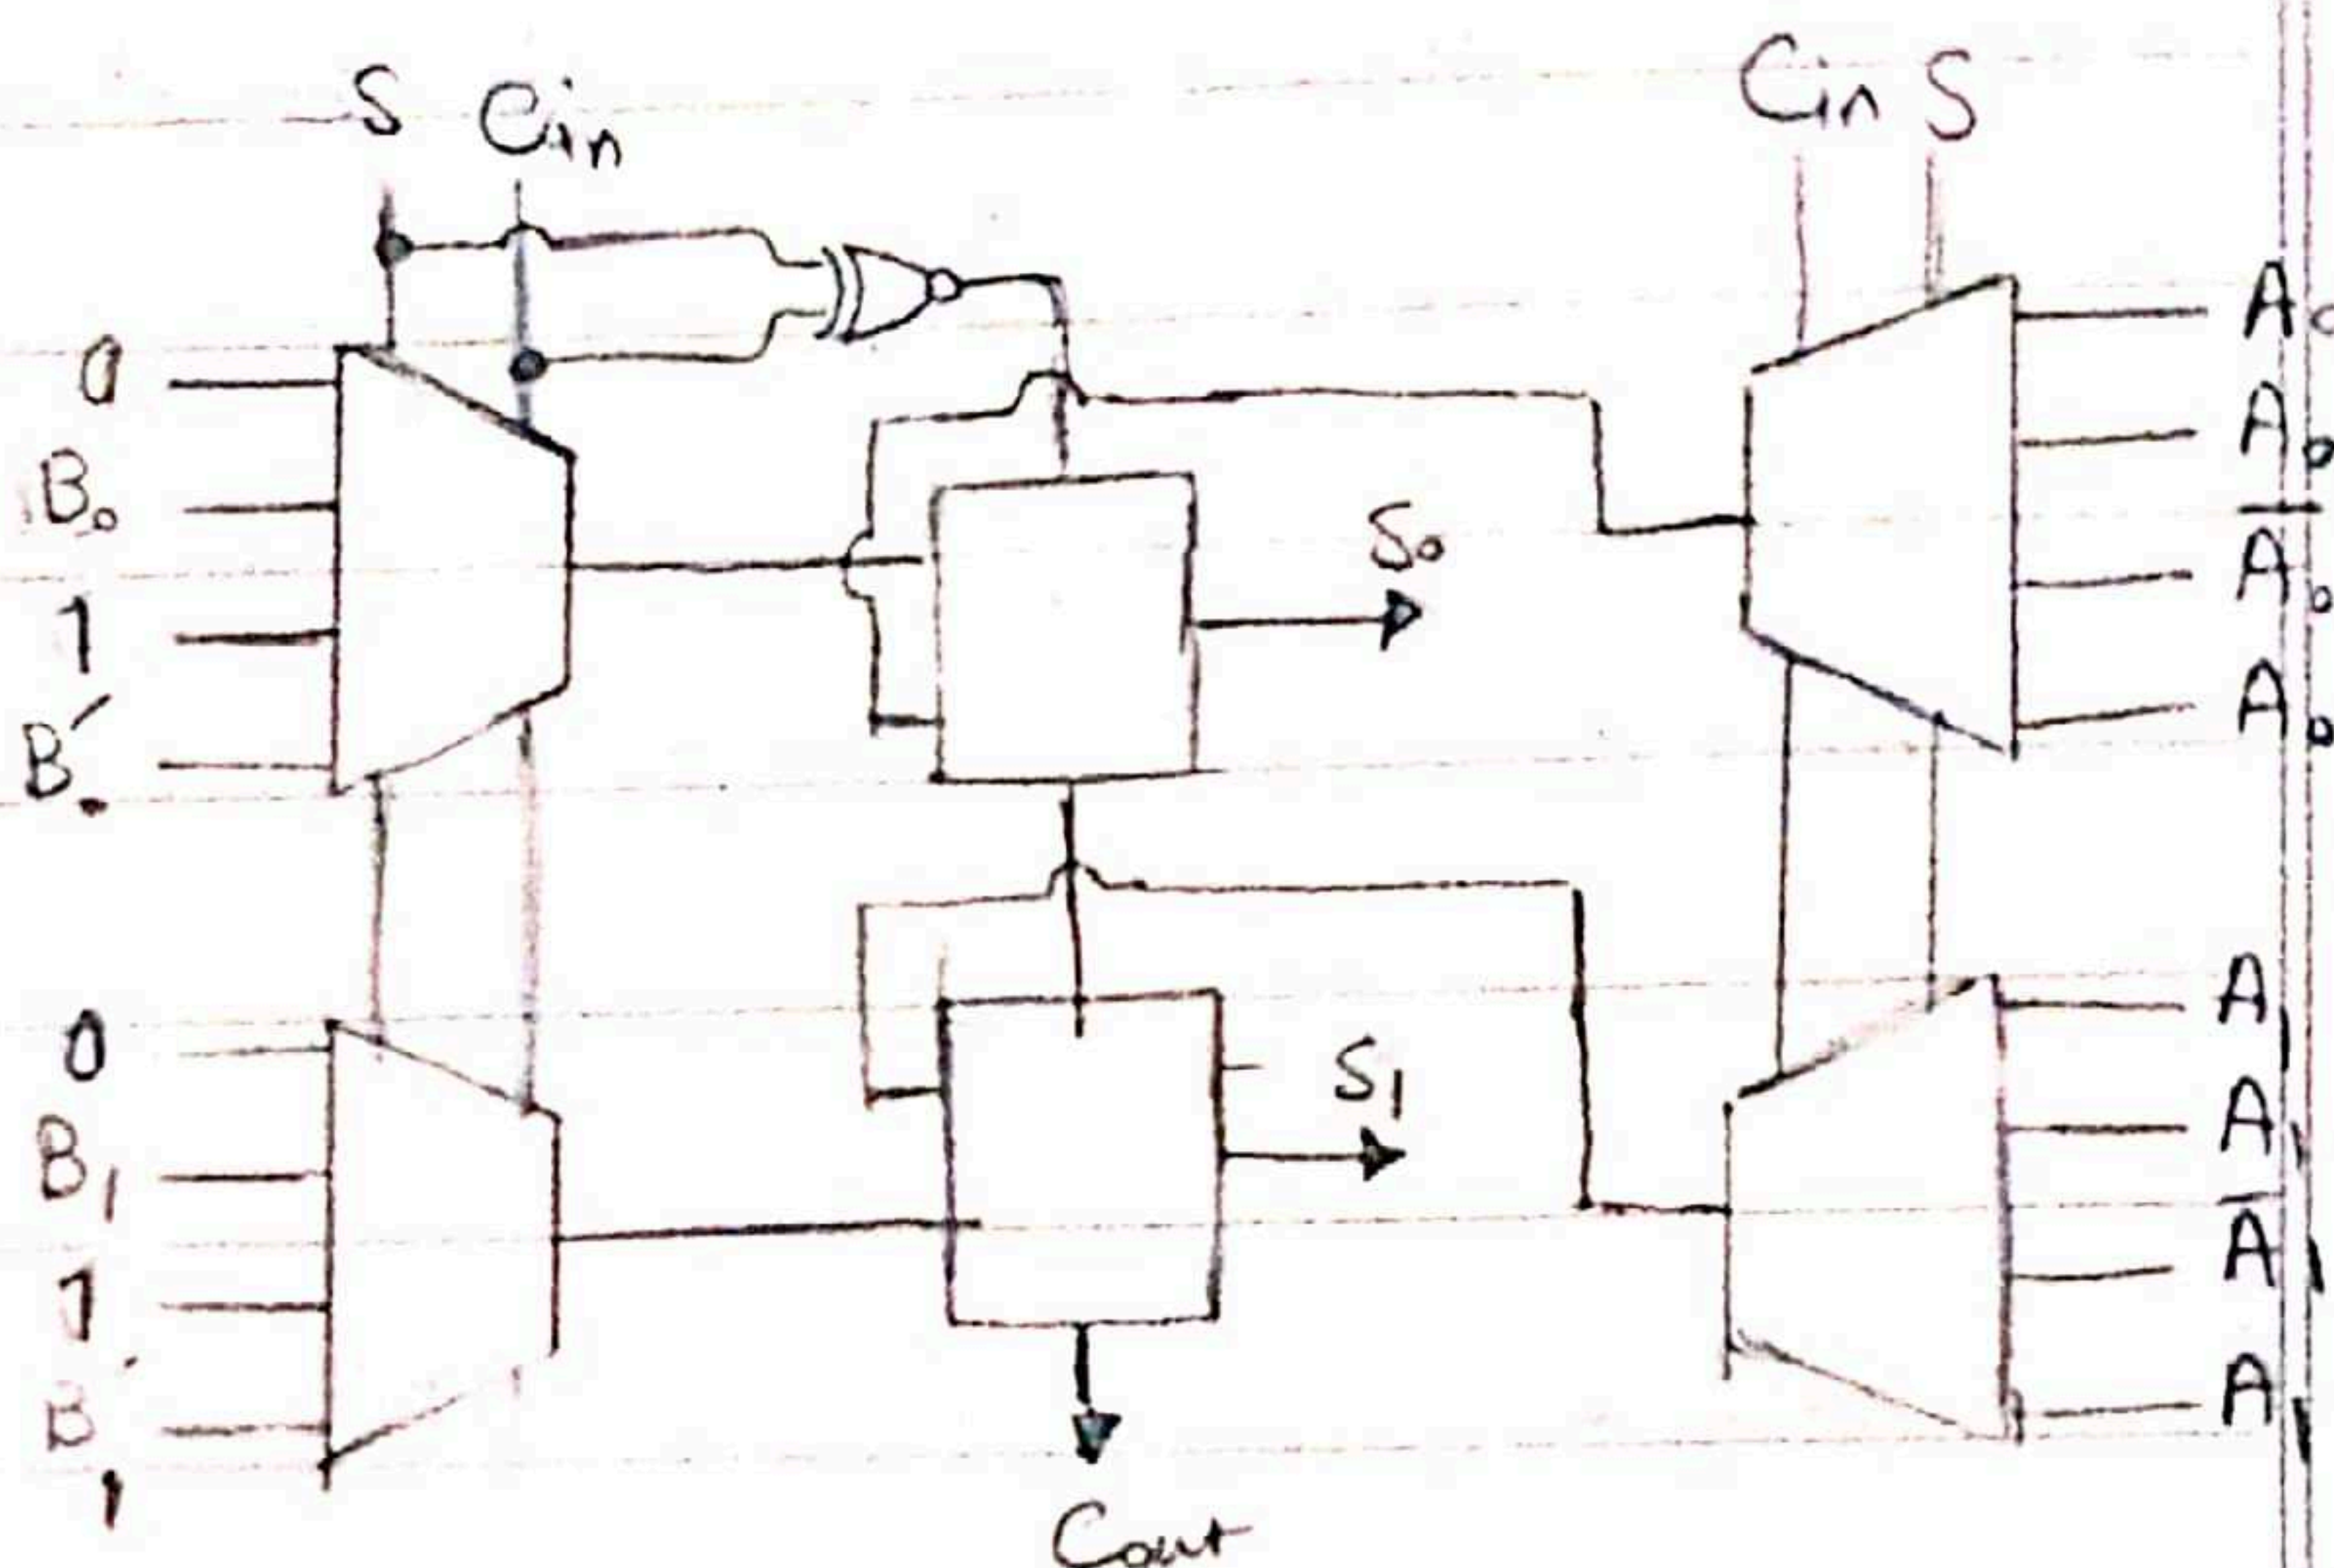 S Cin
Cin S
0
B₀
1
B₀′
S₀
A₀
A₀
A̅₀
A₀
0
B₁
1
B₁′
S₁
A₁
A₁
A̅₁
A₁
Cout